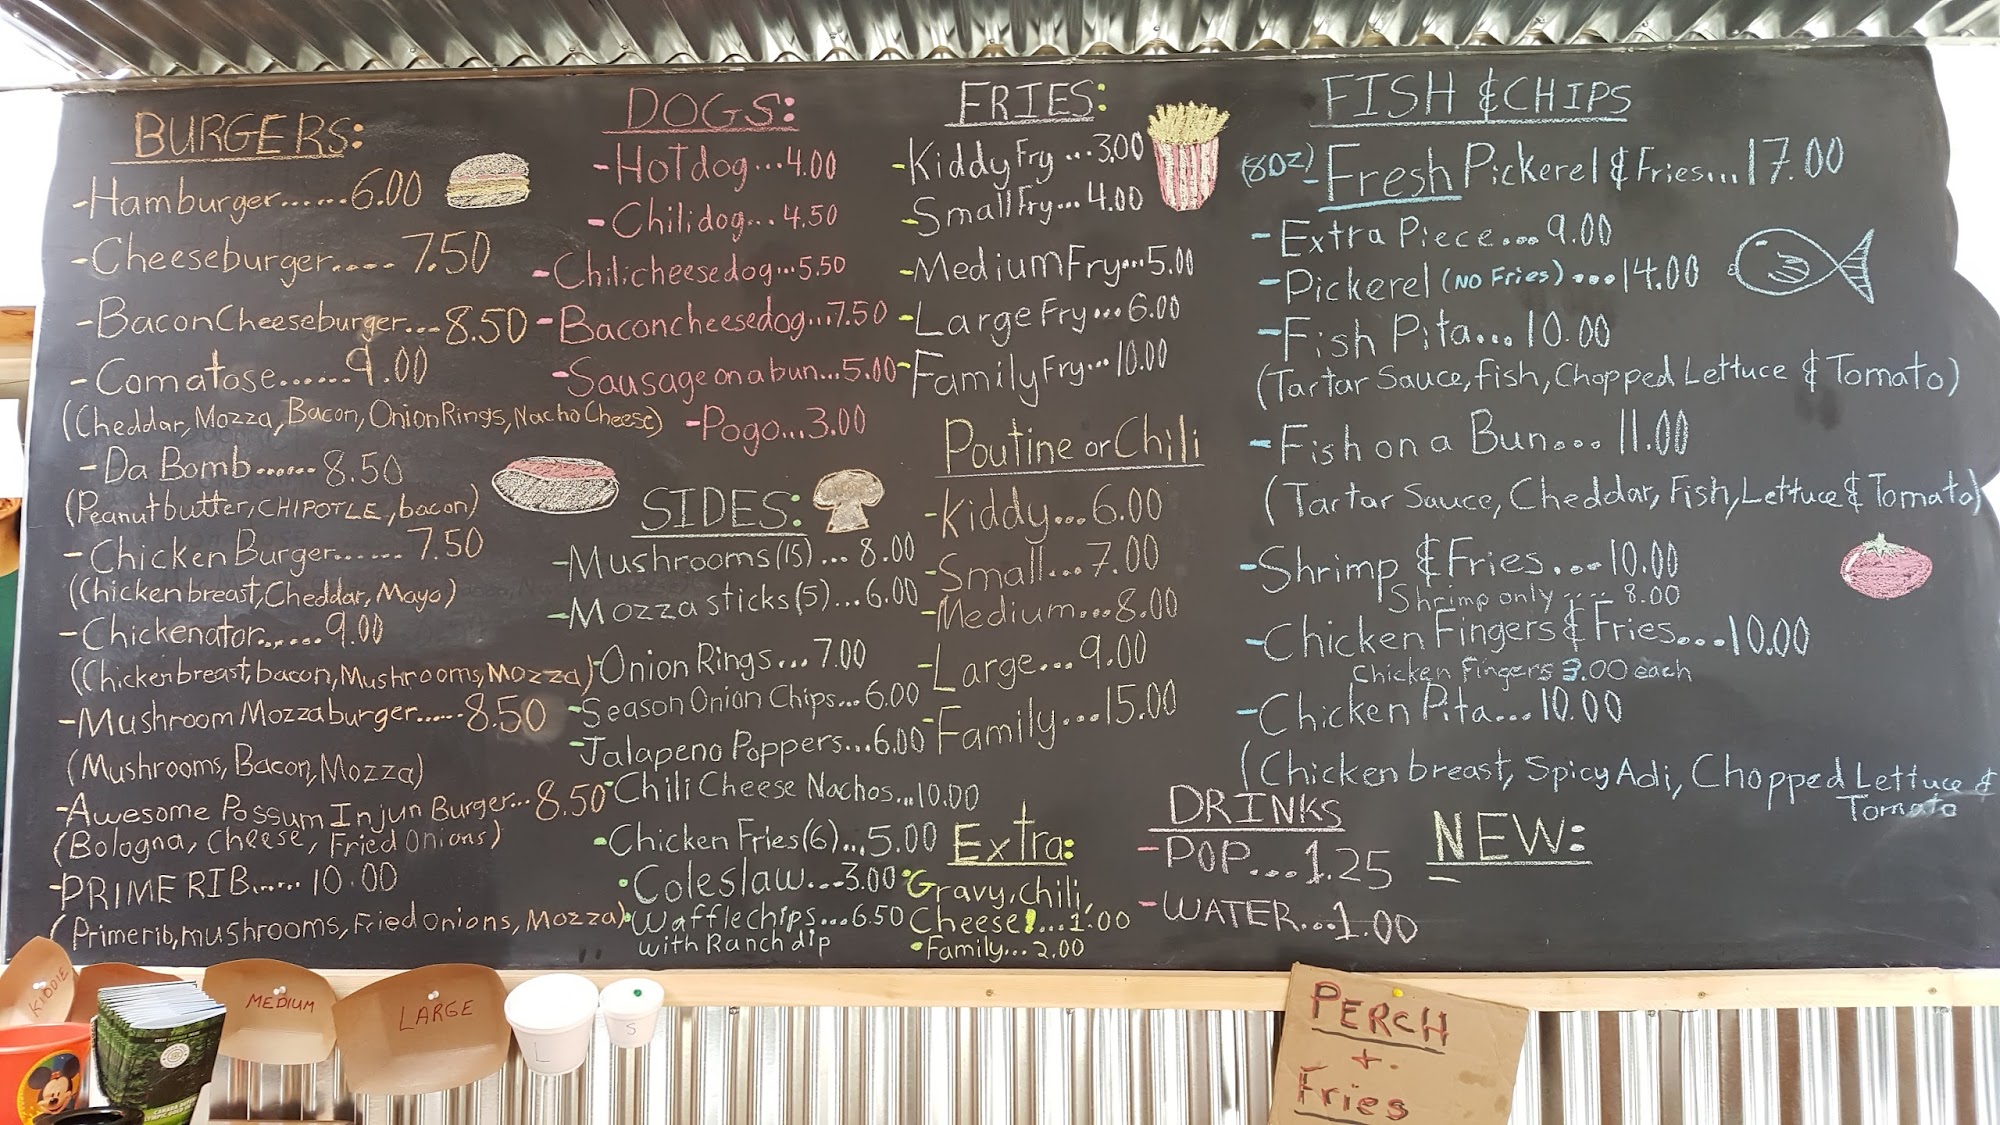 BURGERS:
-Hamburger......6.00
-Cheeseburger.....7.50
-Bacon Cheeseburger...8.50
-Comatose......9.00
(Cheddar, Mozza, Bacon, Onion Rings, Nacho Cheese)
-Da Bomb.......8.50
(Peanutbutter, CHIPOTLE, bacon)
-Chicken Burger......7.50
(Chicken breast, Cheddar, Mayo)
-Chickenator......9.00
(Chicken breast, bacon, Mushrooms, Mozza)
-Mushroom Mozzaburger......8.50
(Mushrooms, Bacon, Mozza)
-Awesome Possum Injun Burger...8.50
(Bologna, Cheese, Fried Onions)
-PRIME RIB......10.00
(Prime rib, mushrooms, Fried onions, Mozza)
DOGS:
-Hotdog...4.00
-Chilidog...4.50
-Chilicheesedog...5.50
-Baconcheesedog...7.50
-Sausage on a bun...5.00
-Pogo...3.00
SIDES:
-Mushrooms (15)...8.00
-Mozza sticks (5)...6.00
-Onion Rings...7.00
-Season Onion Chips...6.00
-Jalapeno Poppers...6.00
-Chili Cheese Nachos...10.00
-Chicken Fries (6)...5.00
•Coleslaw...3.00
•Waffle chips...6.50
with Ranch dip
FRIES:
-Kiddy Fry...3.00
-Small Fry...4.00
-Medium Fry...5.00
-Large Fry...6.00
-Family Fry...10.00
Poutine or Chili
-Kiddy...6.00
-Small...7.00
-Medium...8.00
-Large...9.00
-Family...15.00
Extra:
•Gravy, chili,
Cheese!...1.00
•Family...2.00
FISH & CHIPS
(8oz)- Fresh Pickerel & Fries...17.00
-Extra Piece...9.00
-Pickerel (NO Fries)...14.00
-Fish Pita...10.00
(Tartar Sauce, fish, Chopped Lettuce & Tomato)
-Fish on a Bun...11.00
(Tartar Sauce, Cheddar, Fish, Lettuce & Tomato)
-Shrimp & Fries...10.00
Shrimp only....8.00
-Chicken Fingers & Fries...10.00
Chicken Fingers 3.00 each
-Chicken Pita...10.00
(Chicken breast, Spicy Aoli, Chopped Lettuce &
Tomato
DRINKS
-POP...1.25
-WATER...1.00
NEW:
KIDDIE
MEDIUM
LARGE
L
S
PERCH
+
Fries